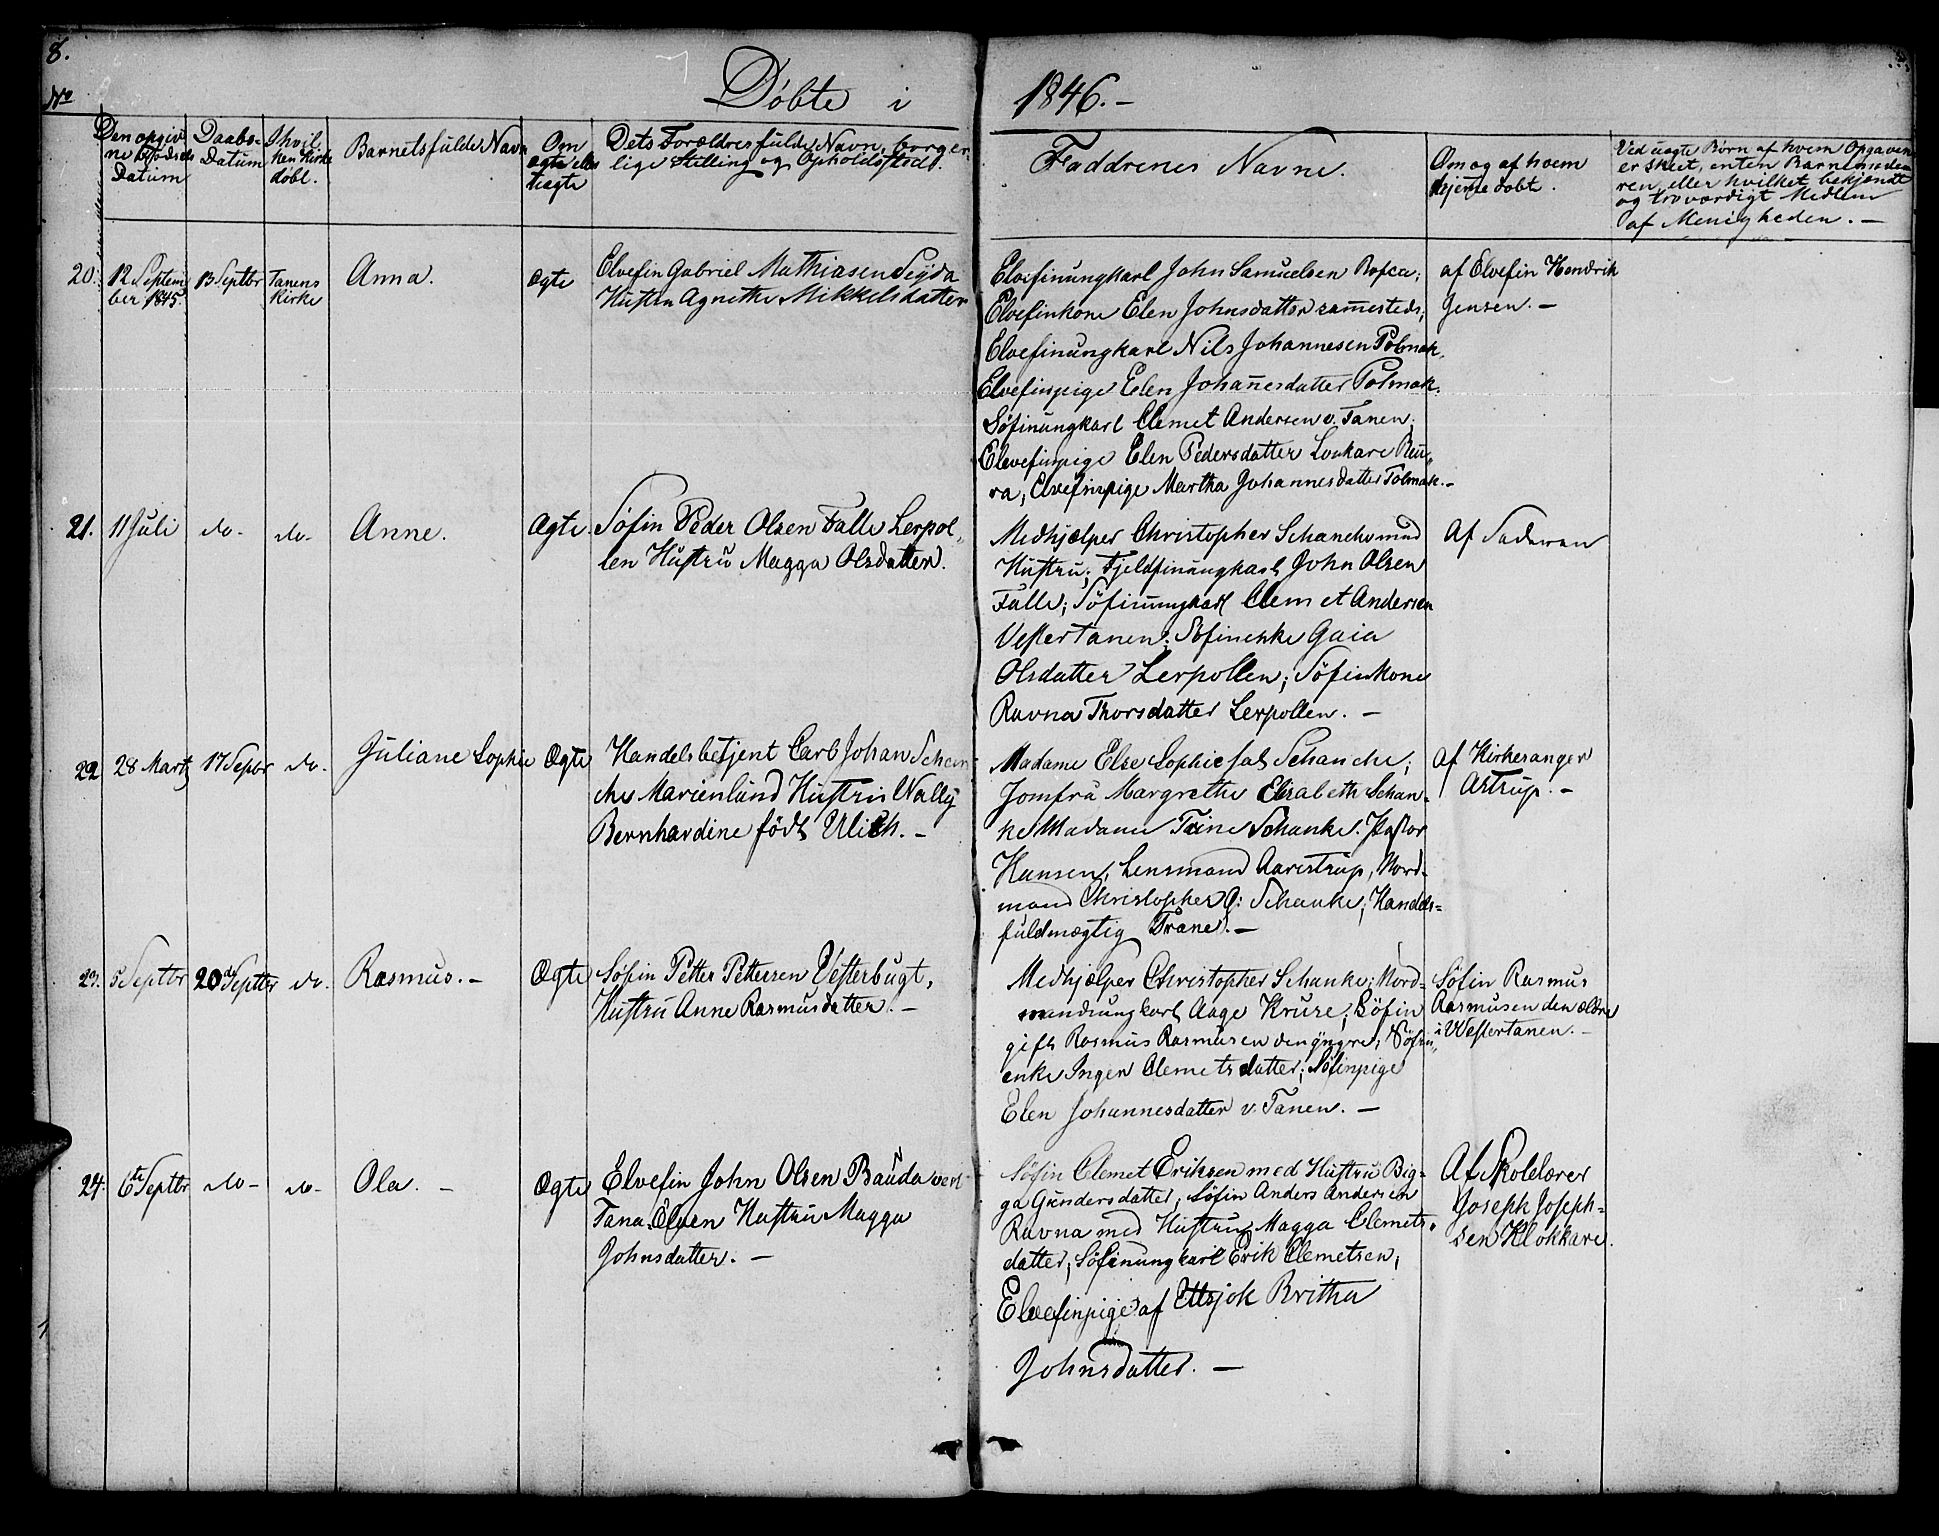 8.
No
Døbte i 1846.-
Den opgiv
ne Fødsels
Datum
Daabs-
Datum
I hvil
ken Kirke
døbt.
Barnets fulde Navn
Om
ægte eller
uægte
Dets Forældres fulde Navn, borger
lige Stilling og Opholdssted.
Faddrenes Navne.
Om og af hvem
hjemedøbt.
Ved uægte Børn af hvem Opgaven
er skeet, enten Barnemode
ren, eller hvilket bekjendt
og troværdigt Medlem
af Menigheden. -
20.
12 Septem
ber 1845.
13 Septbr
Tanens
Kirke
Anna.
Ægte
Elvefin Gabriel Mathiasen Seÿda
Hustru Agnethe Mikkelsdatter
Elvefinungkarl John Samuelsen
Elvefinkone Elen Johnsdatter sammesteds;
Elvefinungkarl Nils Johannesen Polmak.
Elvefinpige Elen Johannesdatter Polmak.
Søfinungkarl Clemet Andersen v. Tanen;
Elevefinpige Elen Pedersdatter
ra, Elvefinpige Martha Johannesdatter Polmak.-
af Elvefin Hendrik
Jensen. -
21.
11 Juli
do-
do-
Anne.
Ægte.
Søfin Peder Olsen Falle Lerpol
len Hustru Magga Olsdatter.
Medhjælper Christopher Schanche med
Hustru; Fjeldfinungkarl John Olsen
Falle; Søfinungkarl Clemet Andersen
Vestertanen; Søfinenke Gaia
Olsdatter Lerpollen; Søfinkone
Ravna Thorsdatter Lerpollen. -
Af Faderen
22
28 Marts
17 Sepbr
do-
Juliane Sophie
Ægte
Handelsbetjent Carl Johan Schan
che Marienlund Hustru Wally
Bernhardine født Ulich. -
Madame Else Sophie sal Schanche;
Jomfru Margrethe Elisabeth Schan-
ke Madame Trine Schanke. Pastor
Hansen, Lensmand Aarestrup, Nord-
mand Christopher G: Schanke; Handels=
fuldmægtig Trane. -
af Kirkesanger
Astrup. -
23.
5 Septbr
20de Septbr
do.
Rasmus. -
Ægte
Søfin Petter Pettersen Vesterbugt,
Hustru Anne Rasmusdatter. -
Medhjælper Christopher Schanke; Nord-
mandungkarl Aage Krure; Søfin
gift Rasmus Rasmusen den yngre; Søfin
enke Inger Clemetsdatter; Søfinpige
Elen Johannesdatter v. Tanen. -
Søfin Rasmus
Rasmusen den ældre
i Vestertanen. -
24.
6te Septbr
do-
do-
Ola. -
Ægte
Elvefin John Olsen Bauda ved
Tana Elven Hustru Magga
Johnsdatter. -
Søfin Clemet Eriksen med Hustru Big-
ga Gundersdatter, Søfin Anders Andersen
Ravna med Hustru Magga Clemets-
datter; Søfinungkarl Erik Clemetsen;
Elvefinpige af Utsjok Britha
Johnsdatter. -
Af Skolelærer
Joseph Joseph=
sen Klokkare.